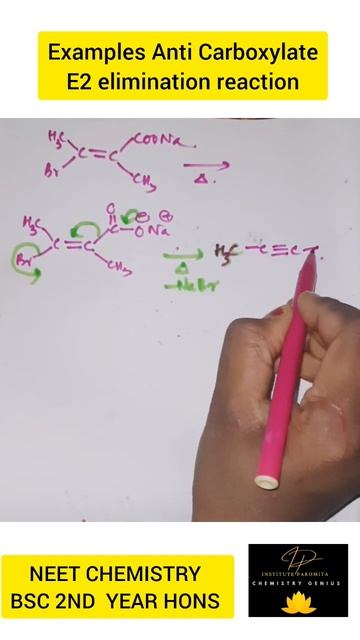 Examples Anti Carboxylate
E2 elimination reaction
H₃C
COONa
C=C
Br
CH₃
Δ
O
H₃C
C-O⊖ ⊕Na
C=C
Br
CH₃
Δ
-NaBr
H₃C-C≡C-
NEET CHEMISTRY
BSC 2ND YEAR HONS
INSTITUTE PAROMITA
CHEMISTRY GENIUS